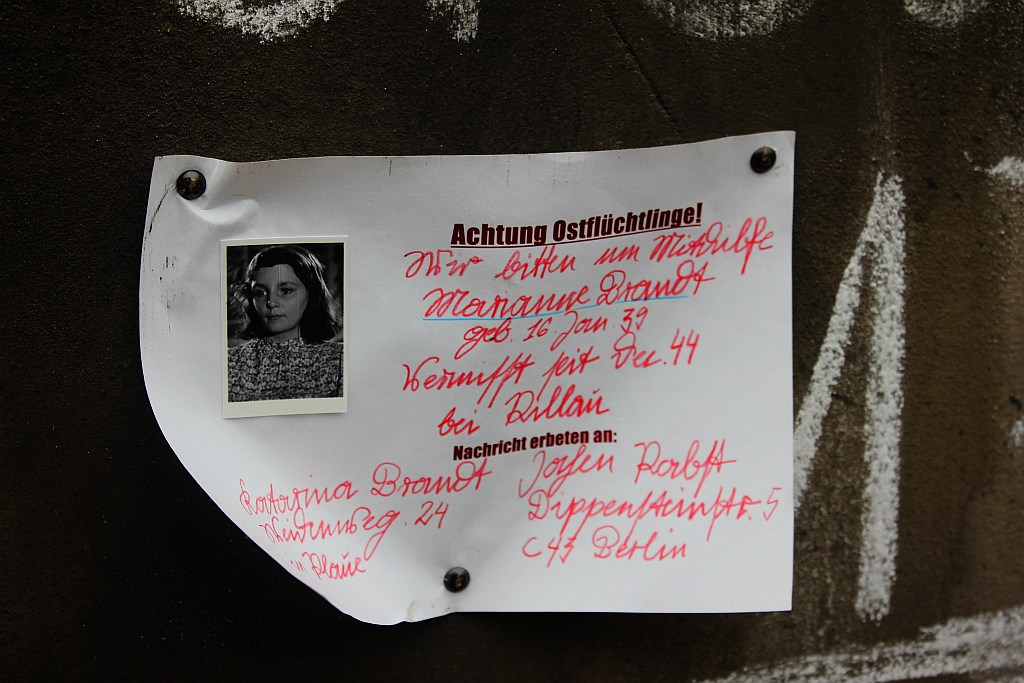 Achtung Ostflüchtlinge!
Wir bitten um Mithilfe
Marianne Brandt
geb. 16. Jan. 39
Vermisst seit Dec. 44
bei Pillau
Nachricht erbeten an:
Katarina Brandt
Weidenweg. 24
in Plaue
Jochen Pabst
Dippensteinstr. 5
C 43 Berlin